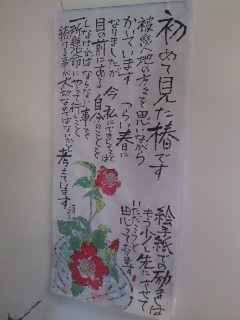 初めて見た椿です
被災地の方々を思いながら
かいています つらい春に
なりましたが 今 私にできることは
目の前にある自分のことを
しなければならない事を
一所懸命にやって行くこと
続ける事が大切なのではないかと 考えています
絵手紙での励まは
もう少し先にさせて
いただこうと
思っております